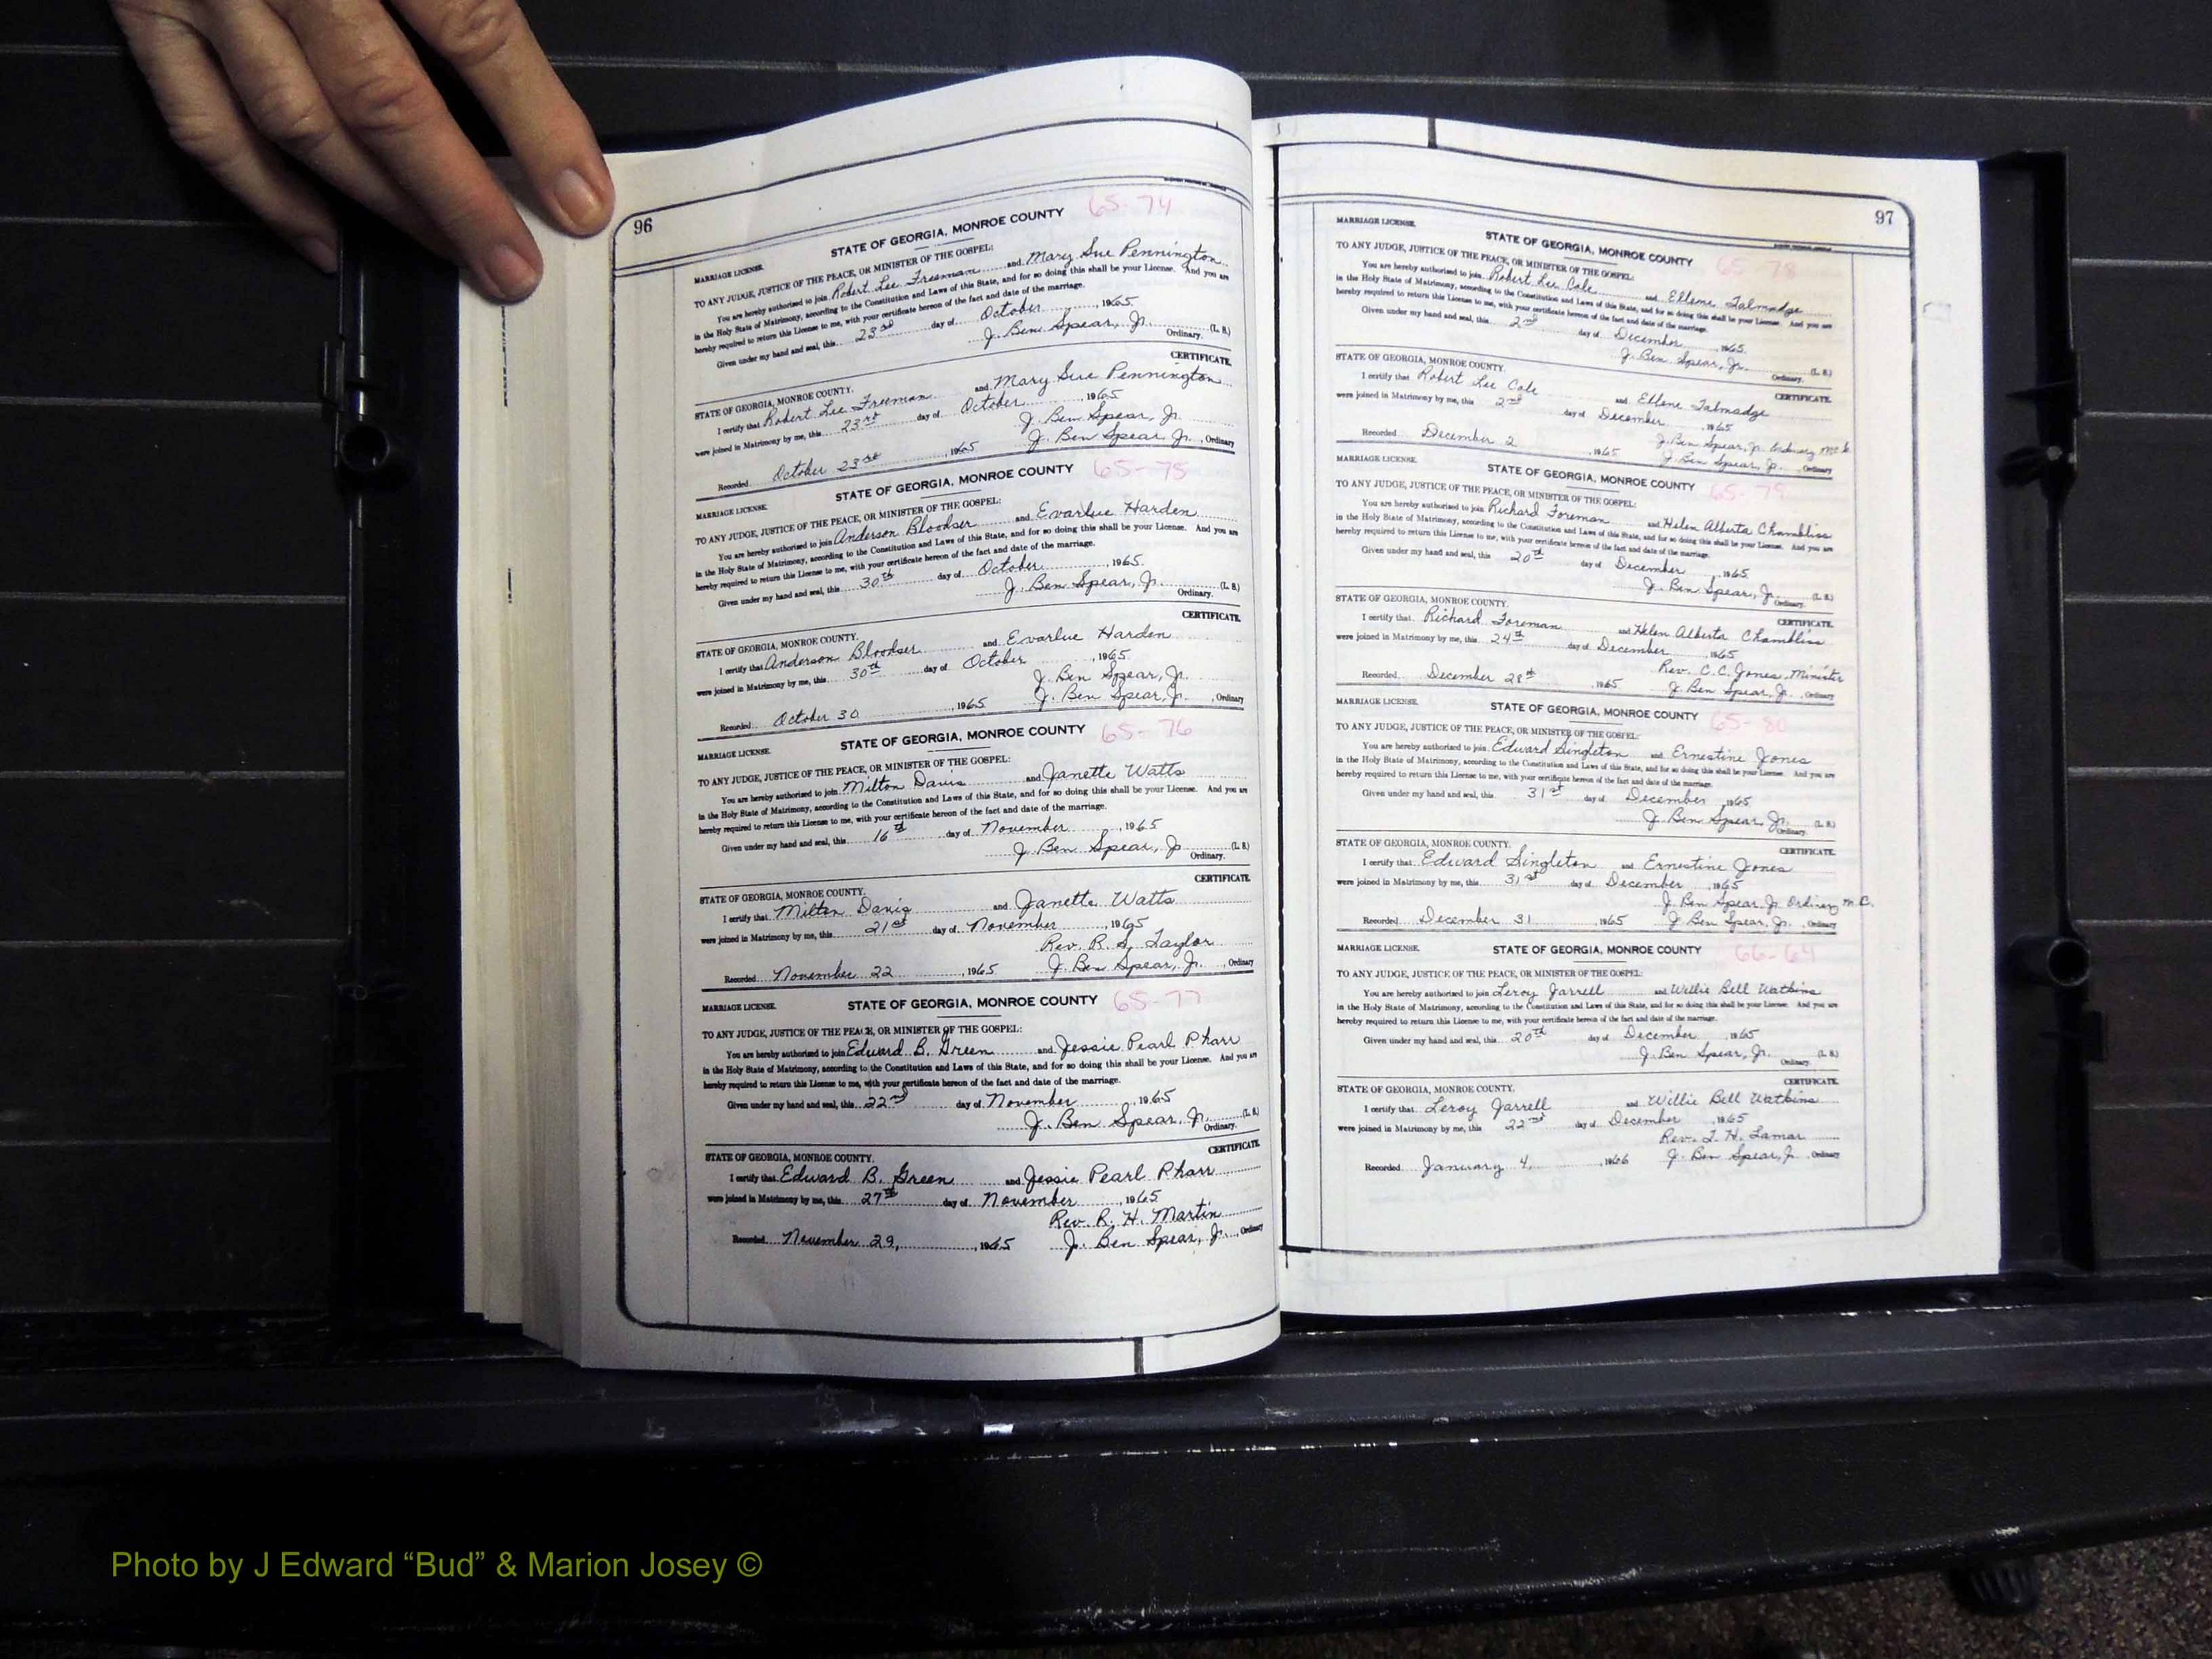 96
65-74
STATE OF GEORGIA, MONROE COUNTY
MARRIAGE LICENSE.
TO ANY JUDGE, JUSTICE OF THE PEACE, OR MINISTER OF THE GOSPEL:
You are hereby authorized to join Robert Lee Freeman and Mary Sue Pennington
in the Holy State of Matrimony, according to the Constitution and Laws of this State, and for so doing this shall be your License. And you are
hereby required to return this License to me, with your certificate hereon of the fact and date of the marriage.
Given under my hand and seal, this 23rd day of October, 1965
J. Ben Spear, Jr. (L. S.)
Ordinary.
CERTIFICATE.
STATE OF GEORGIA, MONROE COUNTY.
I certify that Robert Lee Freeman and Mary Sue Pennington
were joined in Matrimony by me, this 23rd day of October, 1965
J. Ben Spear, Jr.
Recorded October 23rd, 1965 J. Ben Spear Jr., Ordinary
STATE OF GEORGIA, MONROE COUNTY 65-75
MARRIAGE LICENSE.
TO ANY JUDGE, JUSTICE OF THE PEACE, OR MINISTER OF THE GOSPEL:
You are hereby authorized to join Anderson Bloodser and Evarlue Harden
in the Holy State of Matrimony, according to the Constitution and Laws of this State, and for so doing this shall be your License. And you are
hereby required to return this License to me, with your certificate hereon of the fact and date of the marriage.
Given under my hand and seal, this 30th day of October, 1965
J. Ben Spear, Jr. (L. S.)
Ordinary.
CERTIFICATE.
STATE OF GEORGIA, MONROE COUNTY.
I certify that Anderson Bloodser and Evarlue Harden
were joined in Matrimony by me, this 30th day of October, 1965
J. Ben Spear, Jr.
Recorded October 30, 1965 J. Ben Spear, Jr., Ordinary
STATE OF GEORGIA, MONROE COUNTY 65-76
MARRIAGE LICENSE.
TO ANY JUDGE, JUSTICE OF THE PEACE, OR MINISTER OF THE GOSPEL:
You are hereby authorized to join Milton Davis and Janette Watts
in the Holy State of Matrimony, according to the Constitution and Laws of this State, and for so doing this shall be your License. And you are
hereby required to return this License to me, with your certificate hereon of the fact and date of the marriage.
Given under my hand and seal, this 16th day of November, 1965
J. Ben Spear, Jr (L. S.)
Ordinary.
CERTIFICATE.
STATE OF GEORGIA, MONROE COUNTY.
I certify that Milton Davis and Janette Watts
were joined in Matrimony by me, this 21st day of November, 1965
Rev. R. S. Taylor
Recorded November 22, 1965 J. Ben Spear, Jr., Ordinary
MARRIAGE LICENSE. STATE OF GEORGIA, MONROE COUNTY 65-77
TO ANY JUDGE, JUSTICE OF THE PEACE, OR MINISTER OF THE GOSPEL:
You are hereby authorized to join Edward B. Green and Jessie Pearl Pharr
in the Holy State of Matrimony, according to the Constitution and Laws of this State, and for so doing this shall be your License. And you are
hereby required to return this License to me, with your certificate hereon of the fact and date of the marriage.
Given under my hand and seal, this 22nd day of November, 1965
J. Ben Spear, Jr. (L. S.)
Ordinary.
CERTIFICATE.
STATE OF GEORGIA, MONROE COUNTY.
I certify that Edward B. Green and Jessie Pearl Pharr
were joined in Matrimony by me, this 27th day of November, 1965
Rev. R. H. Martin
Recorded November 29, 1965 J. Ben Spear, Jr., Ordinary
97
MARRIAGE LICENSE.
STATE OF GEORGIA, MONROE COUNTY 65-78
TO ANY JUDGE, JUSTICE OF THE PEACE, OR MINISTER OF THE GOSPEL:
You are hereby authorized to join Robert Lee Cole and Ellene Talmadge
in the Holy State of Matrimony, according to the Constitution and Laws of this State, and for so doing this shall be your License. And you are
hereby required to return this License to me, with your certificate hereon of the fact and date of the marriage.
Given under my hand and seal, this 2nd day of December, 1965
J. Ben Spear, Jr. (L. S.)
Ordinary.
STATE OF GEORGIA, MONROE COUNTY. CERTIFICATE.
I certify that Robert Lee Cole and Ellene Talmadge
were joined in Matrimony by me, this 2nd day of December, 1965
J. Ben Spear, Jr. Ordinary M.C.
Recorded December 2, 1965 J. Ben Spear, Jr., Ordinary
MARRIAGE LICENSE. STATE OF GEORGIA, MONROE COUNTY 65-79
TO ANY JUDGE, JUSTICE OF THE PEACE, OR MINISTER OF THE GOSPEL:
You are hereby authorized to join Richard Foreman and Helen Alberta Chambliss
in the Holy State of Matrimony, according to the Constitution and Laws of this State, and for so doing this shall be your License. And you are
hereby required to return this License to me, with your certificate hereon of the fact and date of the marriage.
Given under my hand and seal, this 20th day of December, 1965
J. Ben Spear, Jr. (L. S.)
Ordinary.
STATE OF GEORGIA, MONROE COUNTY. CERTIFICATE.
I certify that Richard Foreman and Helen Alberta Chambliss
were joined in Matrimony by me, this 24th day of December, 1965
Rev. C. C. Jones, Minister
Recorded December 28th, 1965 J. Ben Spear, Jr., Ordinary
MARRIAGE LICENSE. STATE OF GEORGIA, MONROE COUNTY 65-80
TO ANY JUDGE, JUSTICE OF THE PEACE, OR MINISTER OF THE GOSPEL:
You are hereby authorized to join Edward Singleton and Ernestine Jones
in the Holy State of Matrimony, according to the Constitution and Laws of this State, and for so doing this shall be your License. And you are
hereby required to return this License to me, with your certificate hereon of the fact and date of the marriage.
Given under my hand and seal, this 31st day of December, 1965
J. Ben Spear, Jr. (L. S.)
Ordinary.
STATE OF GEORGIA, MONROE COUNTY. CERTIFICATE.
I certify that Edward Singleton and Ernestine Jones
were joined in Matrimony by me, this 31st day of December, 1965
J. Ben Spear, Jr. Ordinary M.C.
Recorded December 31, 1965 J. Ben Spear, Jr., Ordinary
MARRIAGE LICENSE. STATE OF GEORGIA, MONROE COUNTY 66-64
TO ANY JUDGE, JUSTICE OF THE PEACE, OR MINISTER OF THE GOSPEL:
You are hereby authorized to join Leroy Jarrell and Willie Bell Watkins
in the Holy State of Matrimony, according to the Constitution and Laws of this State, and for so doing this shall be your License. And you are
hereby required to return this License to me, with your certificate hereon of the fact and date of the marriage.
Given under my hand and seal, this 20th day of December, 1965
J. Ben Spear, Jr. (L. S.)
Ordinary.
CERTIFICATE.
STATE OF GEORGIA, MONROE COUNTY.
I certify that Leroy Jarrell and Willie Bell Watkins
were joined in Matrimony by me, this 22nd day of December, 1965
Rev. T. H. Lamar
Recorded January 4, 1966 J. Ben Spear, Jr. Ordinary
Photo by J Edward “Bud” & Marion Josey ©